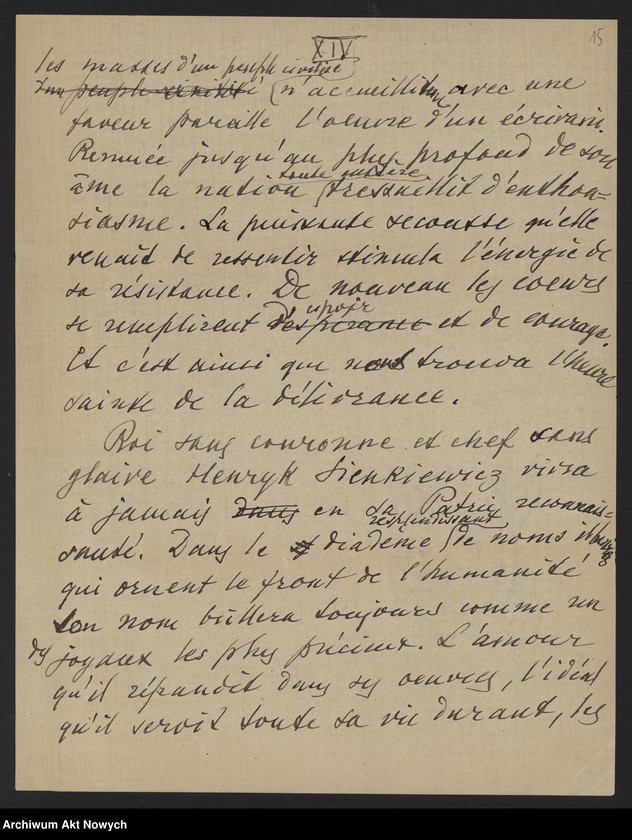 XIV
15
les masses d'un peuple civilisé
d'un peuple civilisé (n'accueillirent avec une
faveur pareille l'oeuvre d'un écrivain.
Remuée jusqu'au plus profond de son
toute entière
âme la nation tressaillit d'enthou-
siasme. La puissante secousse qu'elle
venait de ressentir stimula l'énergie de
sa résistance. De nouveau les coeurs
espoir
se remplirent d'espérance et de courage.
Et c'est ainsi que nous trouva l'heure
sainte de la délivrance.
Roi sans couronne et chef sans
glaive Henryk Sienkiewicz vivra
à jamais dans en sa Patrie reconnais-
resplendissant
sante. Dans le diadème (de noms illustres
qui ornent le front de l'humanité
son nom brillera toujours comme un
des joyaux les plus précieux. L'amour
qu'il répandit dans ses oeuvres, l'idéal
qu'il servit toute sa vie durant, les
Archiwum Akt Nowych